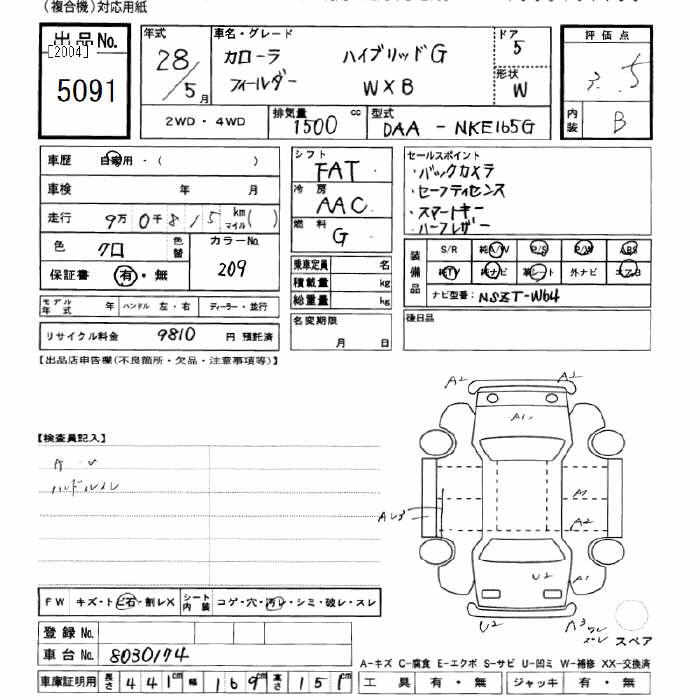 （複合機）対応用紙
出品No.
[2004]
5091
年式
28/5月
車名・グレード
カローラ ハイブリッドG
フィールダー W×B
ドア
5
形状
W
評価点
3.5
内装
B
2WD・4WD
排気量
1500 cc
型式
DAA - NKE165G
車歴 自家用・( )
車検 年 月
走行 9万0千815 km マイル( )
色 クロ 色替
カラーNo.
209
保証書 有・無
モデル年式 年 ハンドル 左・右 ディーラー・並行
リサイクル料金 9810 円 預託済
シフト
FAT
冷房
AAC
燃料
G
乗車定員 名
積載量 kg
総重量 kg
名変期限
月 日
セールスポイント
・バックカメラ
・セーフティセンス
・スマートキー
・ハーフレザー
装備品
S/R 純A/W P/S P/W ABS
純TV 純ナビ 革シート 外ナビ エアB
ナビ型番： NSZT-W64
後日品
【出品店申告欄(不良箇所・欠品・注意事項等)】
【検査員記入】
A2 A2
A1
A1
A2
U2 A1
U2 A3
FW キズ・トビ石・割レX シート内装 コゲ・穴・汚レ・シミ・破レ・スレ
登録No.
車台No. 8030174
車庫証明用 長さ 441cm 幅 169cm 高さ 151cm
スペア
A-キズ C-腐食 E-エクボ S-サビ U-凹ミ W-補修 XX-交換済
工具 有・無 ジャッキ 有・無